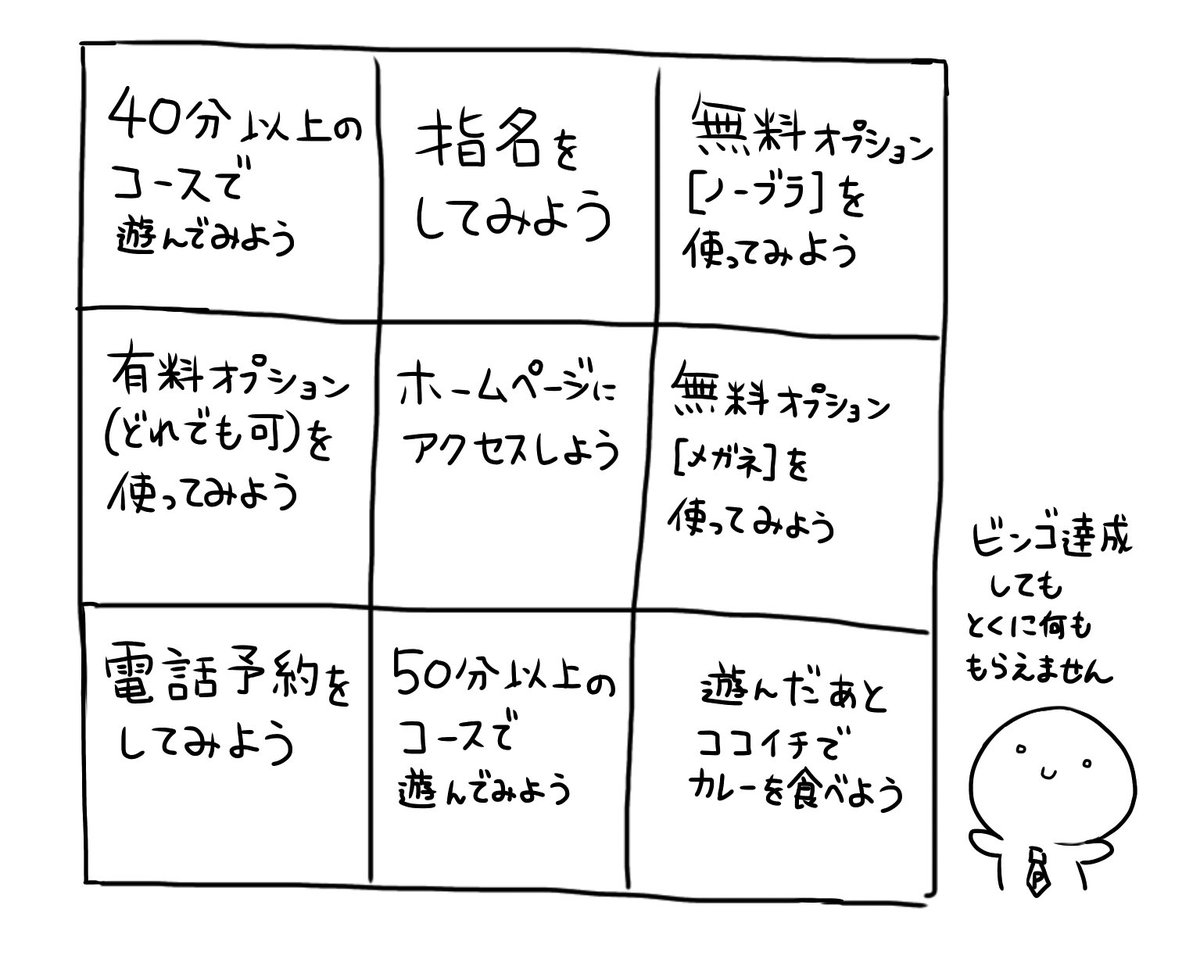 40分以上の
コースで
遊んでみよう
指名を
してみよう
無料オプション
[ノーブラ]を
使ってみよう
有料オプション
(どれでも可)を
使ってみよう
ホームページに
アクセスしよう
無料オプション
[メガネ]を
使ってみよう
電話予約を
してみよう
50分以上の
コースで
遊んでみよう
遊んだあと
ココイチで
カレーを食べよう
ビンゴ達成
しても
とくに何も
もらえません
P